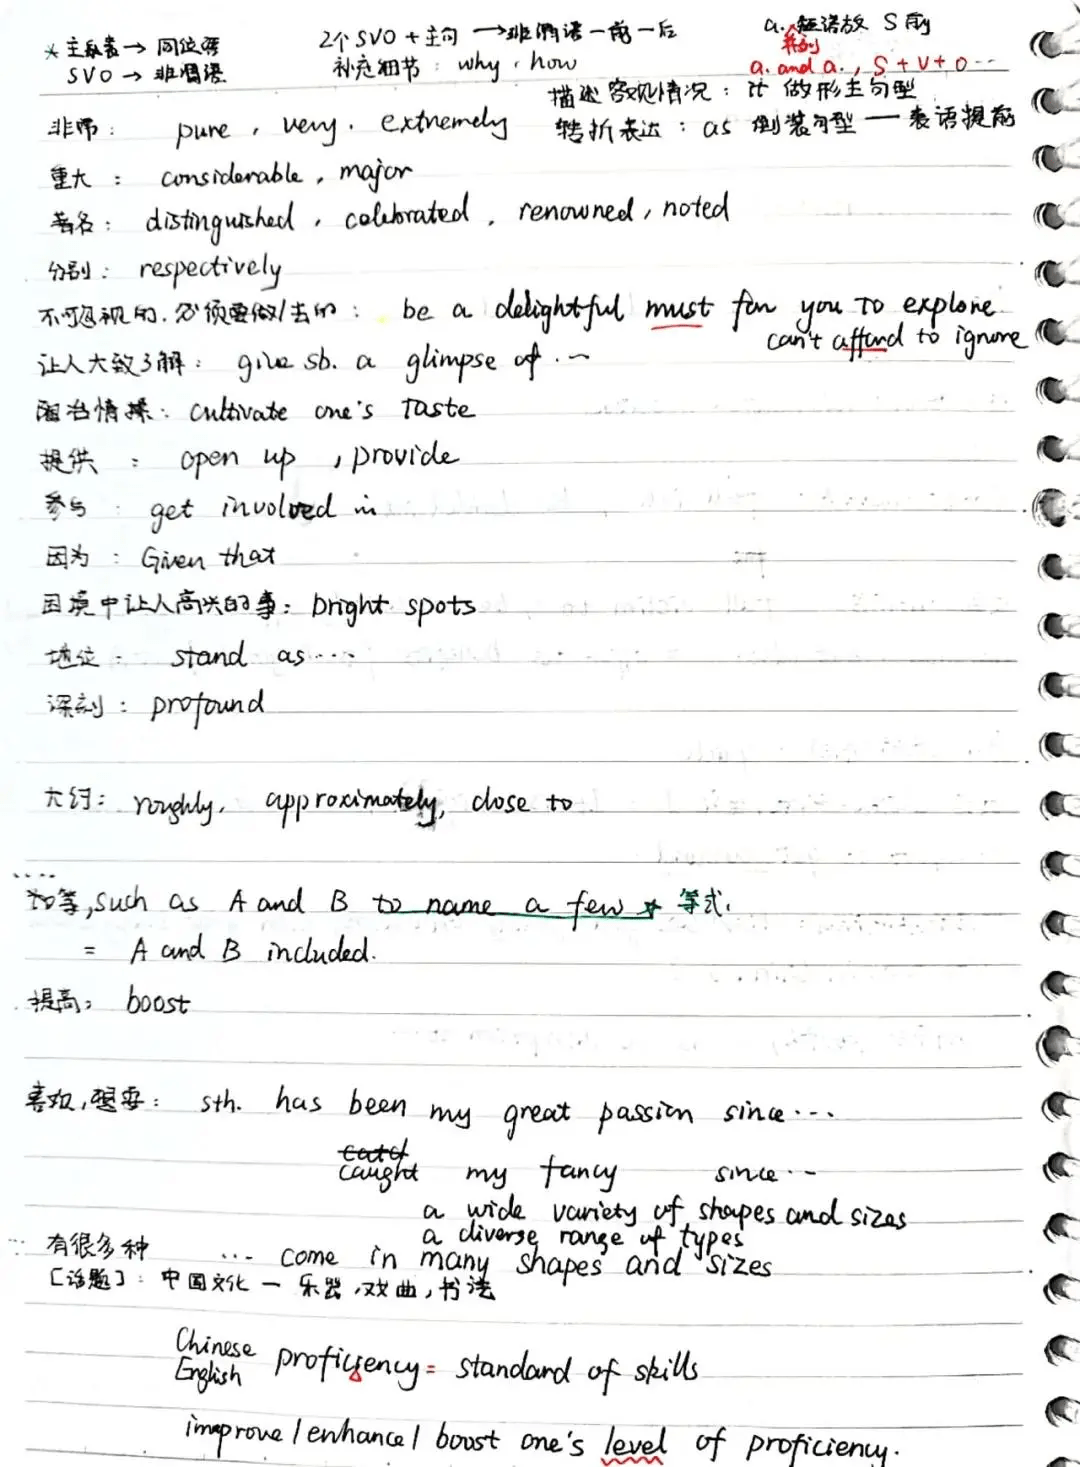 * 主系表 → 同位语
SVO → 非谓语
2个SVO + 主句 → 非谓语一前一后
补充细节: why, how
a. 短语放 S 前
并列
a. and a., S + V + O ...
描述客观情况: it 做形主句型
转折表达: as 倒装句型 — 表语提前
非常: pure, very. extremely
重大: considerable, major
著名: distinguished, celebrated, renowned, noted
分别: respectively
不可忽视的, 必须要做/去的: be a delightful must for you to explore
can't afford to ignore
让人大致了解: give sb. a glimpse of ...
陶冶情操: cultivate one's taste
提供: open up, provide
参与: get involved in
因为: Given that
困境中让人高兴的事: bright spots
地位: stand as ...
深刻: profound
大约: roughly, approximately, close to
如等, such as A and B to name a few * 等式.
= A and B included.
提高: boost
喜欢, 想要: sth. has been my great passion since ...
catd
caught my fancy since ...
a wide variety of shapes and sizes
a diverse range of types
有很多种 ... come in many shapes and sizes
[话题]: 中国文化 — 乐器, 戏曲, 书法
Chinese
English proficiency = standard of skills
improve / enhance / boost one's level of proficiency.